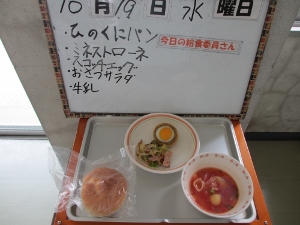 10月19日 水曜日
・ひのくにパン
今日の給食委員さん
・ミネストローネ
・スコッチエッグ
・おさつサラダ
・牛乳